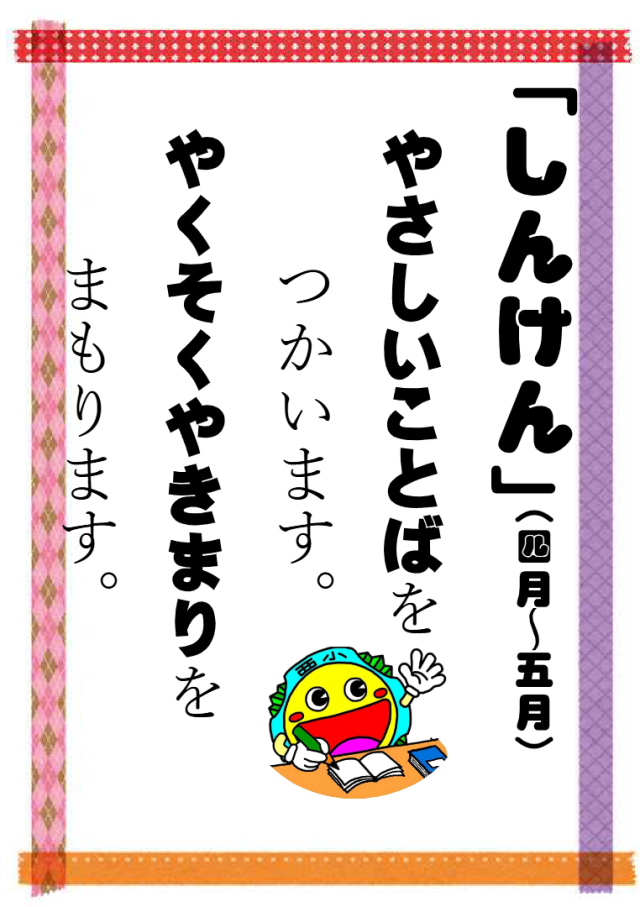 「しんけん」(四月～五月)
やさしいことばを
つかいます。
やくそくやきまりを
まもります。
西小